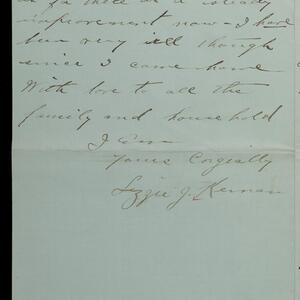 as far there is a steady
improvement now - I have
been very ill though
since I came home
With love to all the
family and household
I am
Yours Corgeally
Lizzie J. Kernan